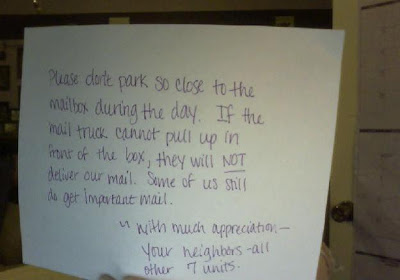 Please don't park so close to the
mailbox during the day. If the
mail truck cannot pull up in
front of the box, they will NOT
deliver our mail. Some of us still
do get important mail.
~ with much appreciation -
Your neighbors - all
other 7 units.